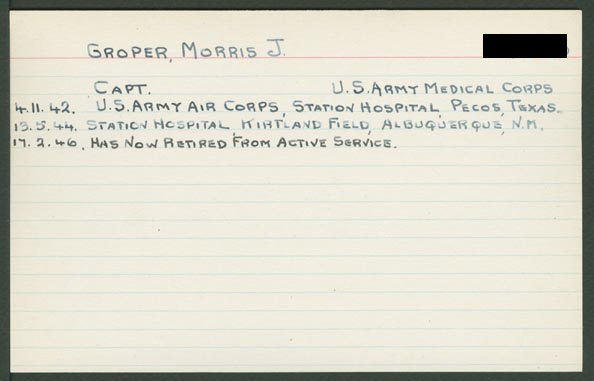 GROPER, MORRIS J.
CAPT. U.S. ARMY MEDICAL CORPS
4.11.42. U.S. ARMY AIR CORPS, STATION HOSPITAL, PECOS, TEXAS.
13.5.44. STATION HOSPITAL, KIRTLAND FIELD, ALBUQUERQUE, N.M.
17.2.46. HAS NOW RETIRED FROM ACTIVE SERVICE.